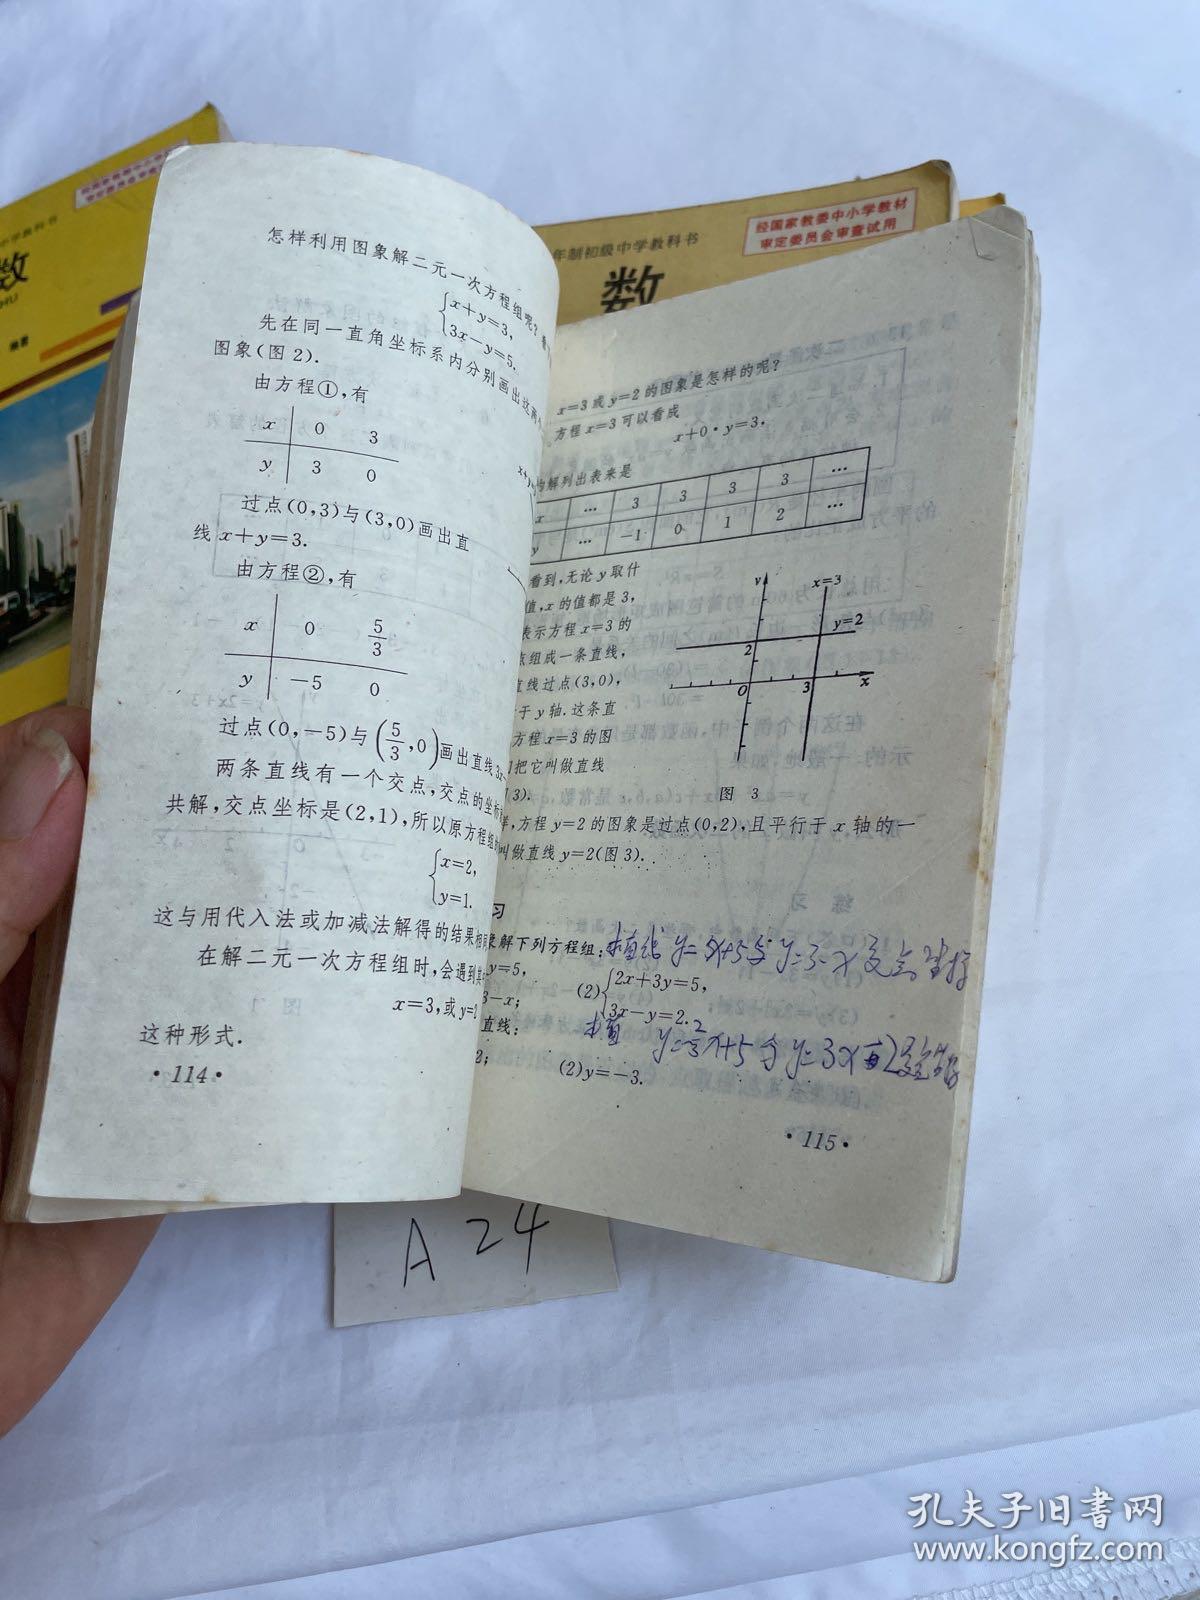 经国家教委中小学教材
审定委员会审查试用
年制初级中学教科书
数
中学教科书
数
怎样利用图象解二元一次方程组呢?
x+y=3,
3x-y=5.
先在同一直角坐标系内分别画出这两
图象(图2).
由方程①,有
x 0 3
y 3 0
过点(0,3)与(3,0)画出直
线x+y=3.
由方程②,有
x 0 5/3
y -5 0
过点(0,-5)与(5/3,0)画出直线3x-
两条直线有一个交点,交点的坐标
共解,交点坐标是(2,1),所以原方程组
x=2,
y=1.
这与用代入法或加减法解得的结果相同
在解二元一次方程组时,会遇到其
x=3,或y=2
这种形式.
·114·
x=3或y=2的图象是怎样的呢?
方程x=3可以看成
x+0·y=3.
解列出表来是
x … 3 3 3 3 …
y … -1 0 1 2 …
看到,无论y取什
值,x的值都是3,
表示方程x=3的
点组成一条直线,
直线过点(3,0),
于y轴.这条直
方程x=3的图
把它叫做直线
3).
y
x=3
y=2
2
O
3
x
图 3
,方程y=2的图象是过点(0,2),且平行于x轴的一
叫做直线y=2(图3).
习
象解下列方程组:
y=5,
3-x;
(2) 2x+3y=5,
3x-y=2.
直线:
2;
(2)y=-3.
·115·
A 24
孔夫子旧书网
www.kongfz.com